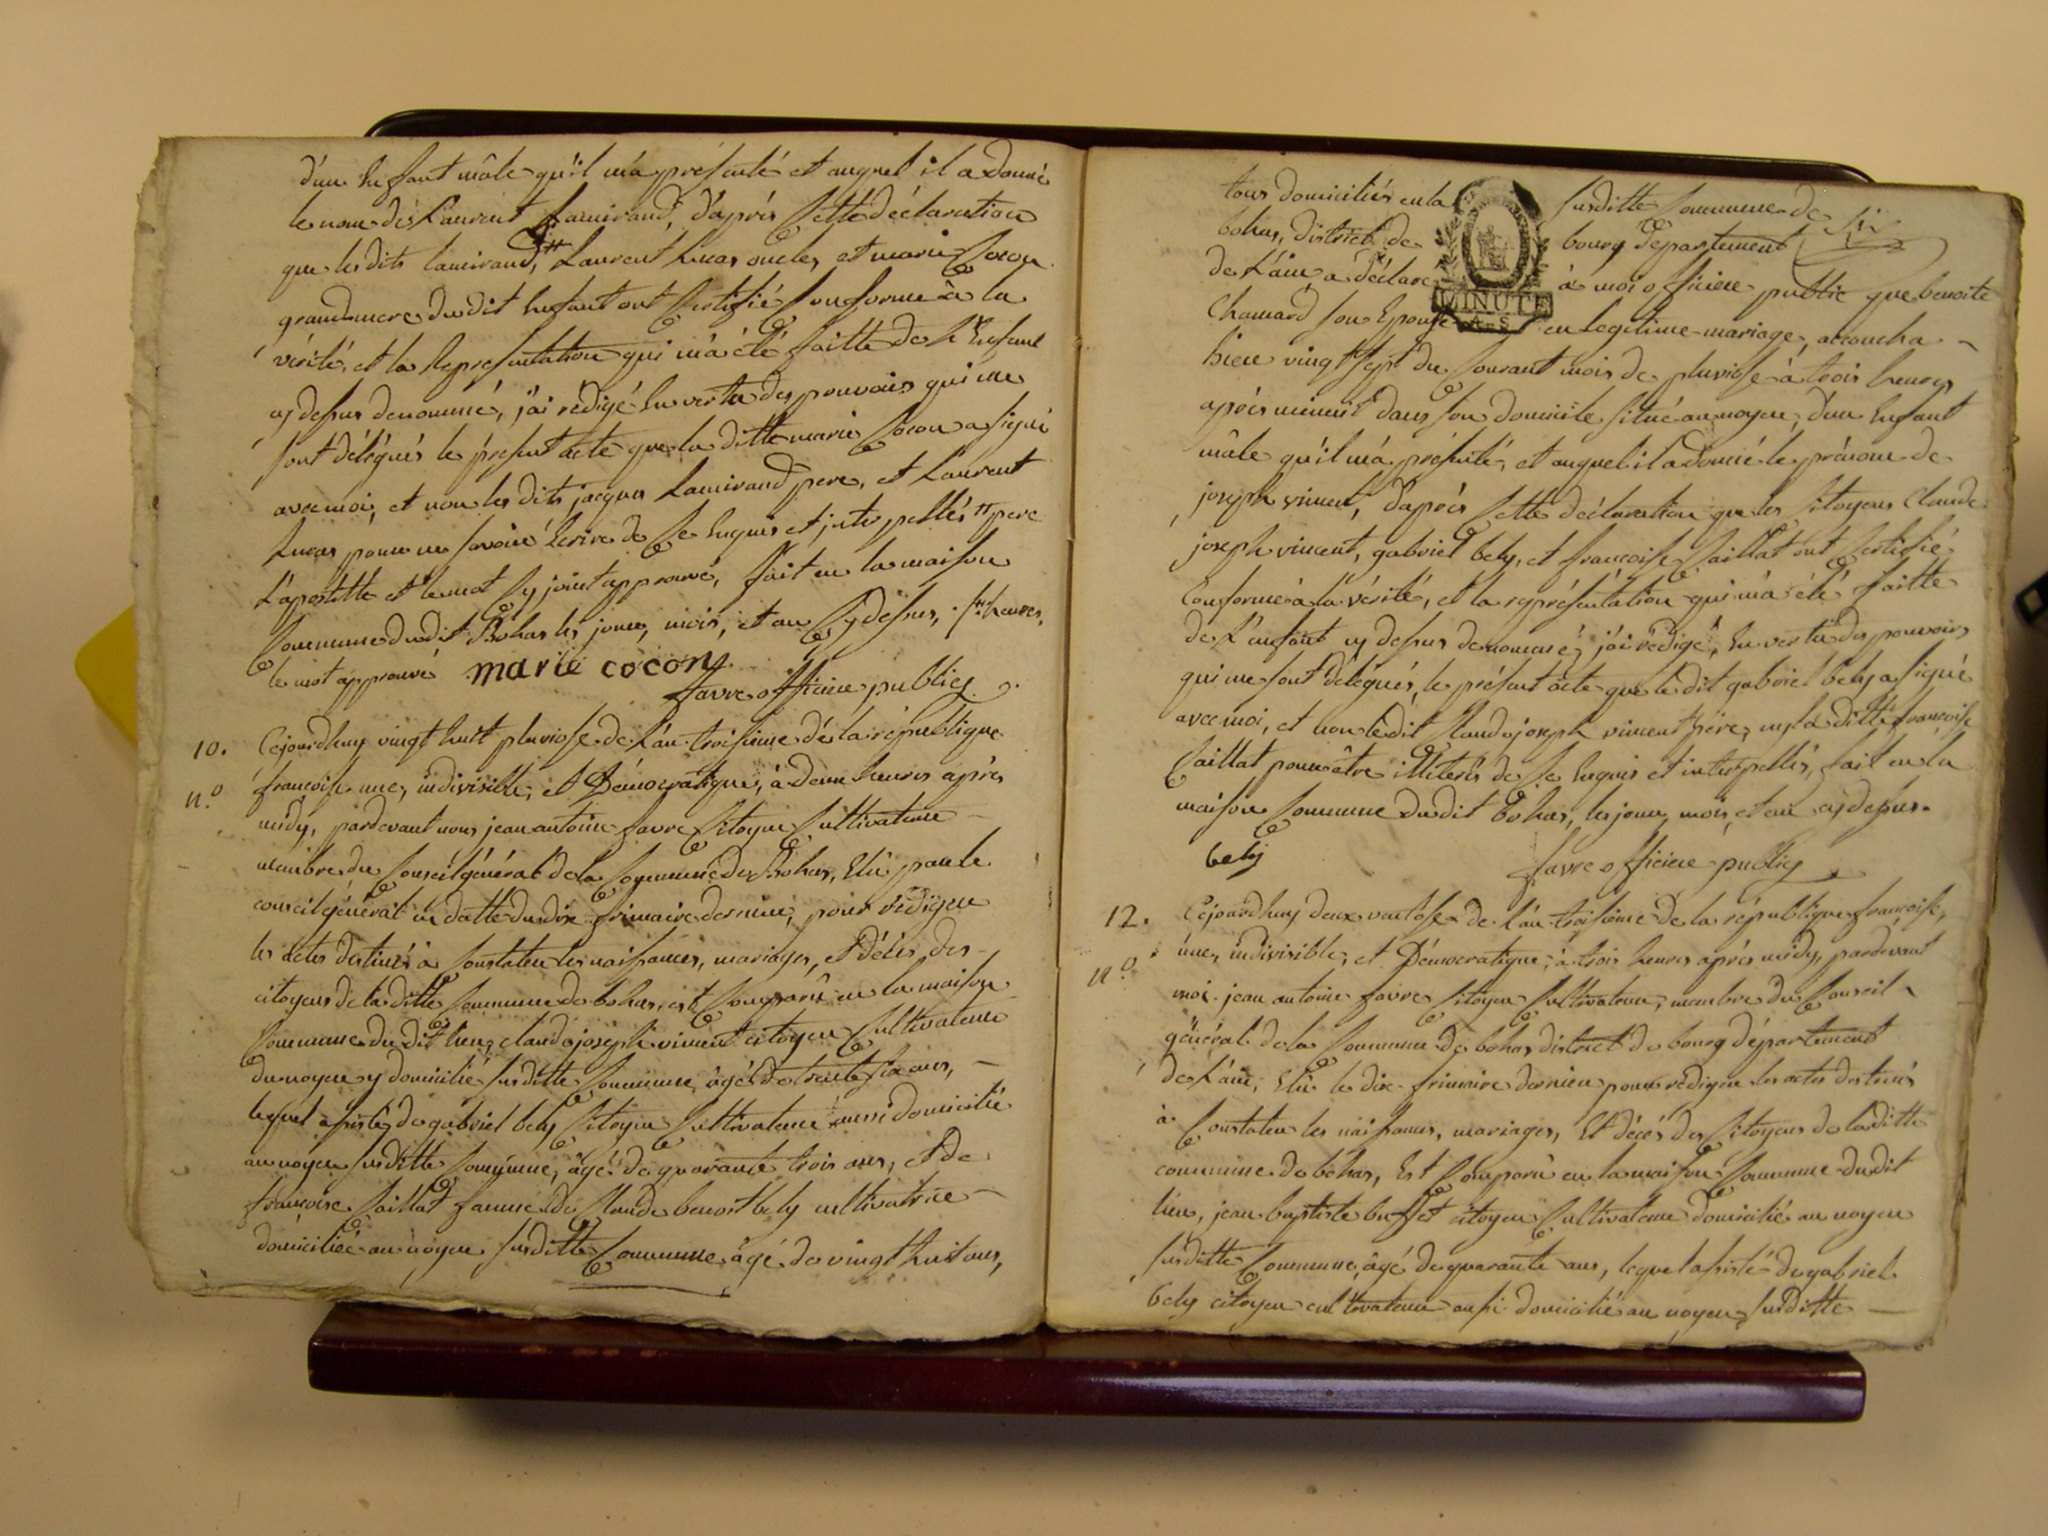 d'un Enfant mâle qu'il m'a présenté et auquel il a donné
le nom de Laurent Lamirand, d'après Cette déclaration
que lesdits lamirand, Laurent Lucas oncles, et marie Cocon
grandmere dudit Enfant ont Certifié Conforme à la
vérité, et la Représentation qui m'a été faitte de L'Enfant
cy dessus denommé, j'ai rédigé En vertu des pouvoirs qui me
sont délégués le présent acte que la ditte marie Cocon a signé
avec moi, et non les dits jacques Lamirand pere, et Laurent
Lucas pour ne savoir Ecrire de Ce Enquis et interpellés pere
L'apostille et le mot Cy joint approuvé, fait en la maison
Commune dudit Bohas les jour, mois, et an Cy dessus,
le mot approuvé marie cocon
favre officier public
10. Cejourdhuy vingt huit pluviose de L'an troisieme de la république
n.º françoise une, indivisible, et Démocratique, à deux heures après
midy, pardevant nous jean antoine favre Citoyen Cultivateur
membre du Conseil général de la Commune de Bohas, Elû par le
conseil général en datte du dix frimaire dernier, pour rédiger
les actes destinés à Constater les naissances, mariages, et décès des
citoyens de la ditte Commune de bohas, est Comparû en la maison
Commune du dit lieu, claude joseph vincent citoyen Cultivateur
du noyer y domicilié susditte Commune, âgé de trente six ans,
lequel assisté de gabriel bely Citoyen Cultivateur aussi domicilié
au noyer susditte Commune, âgé de quarante trois ans, et de
françoise Caillat femme de Claude benoist bely cultivatrice
domiciliée au noyer susditte Commune âgé de vingt huit ans,
tous domiciliés en la susditte Commune de
bohas, district de bourg département
de L'ain a déclaré à moi officier public que benoite
Chanard son Epouse en legitime mariage, accoucha
hier vingt sept du Courant mois de pluviose à trois heures
après minuit dans son domicile situé au noyer, d'un Enfant
mâle qu'il m'a présenté, et auquel il a donné le prénom de
joseph vincent, d'après Cette déclaration que les Citoyens Claude
joseph vincent, gabriel bely, et françoise Caillat ont Certifié
Conforme à la vérité, et la représentation qui m'a été faitte
de L'enfant cy dessus denommé, j'ai rédigé, En vertu des pouvoirs
qui me sont délégués, le présent acte que le dit gabriel bely a signé
avec moi, et non ledit Claude joseph vincent père, ny la ditte françoise
Caillat pour être illiterés de Ce Enquis et interpellés, fait en la
maison Commune dudit bohas, les jour, mois, et an cy dessus.
bely
favre officier public
12. Cejourdhuy deux ventose de L'an troisieme de la république françoise,
n.º une, indivisible, et Démocratique, à trois heures après midy, pardevant
moi jean antoine favre Citoyen Cultivateur, membre du Conseil
général de la Commune de bohas district de bourg département
de L'ain, Elû le dix frimaire dernier pour rédiger les actes destinés
à Constater les naissances, mariages, Et décès des Citoyens de laditte
commune de bohas, Est Comparû en la maison Commune dudit
lieu, jean baptiste buffet citoyen Cultivateur domicilié au noyer
susditte Commune, âgé de quarante ans, lequel assisté de gabriel
bely citoyen cultivateur aussi domicilié au noyer susditte
MINUTE